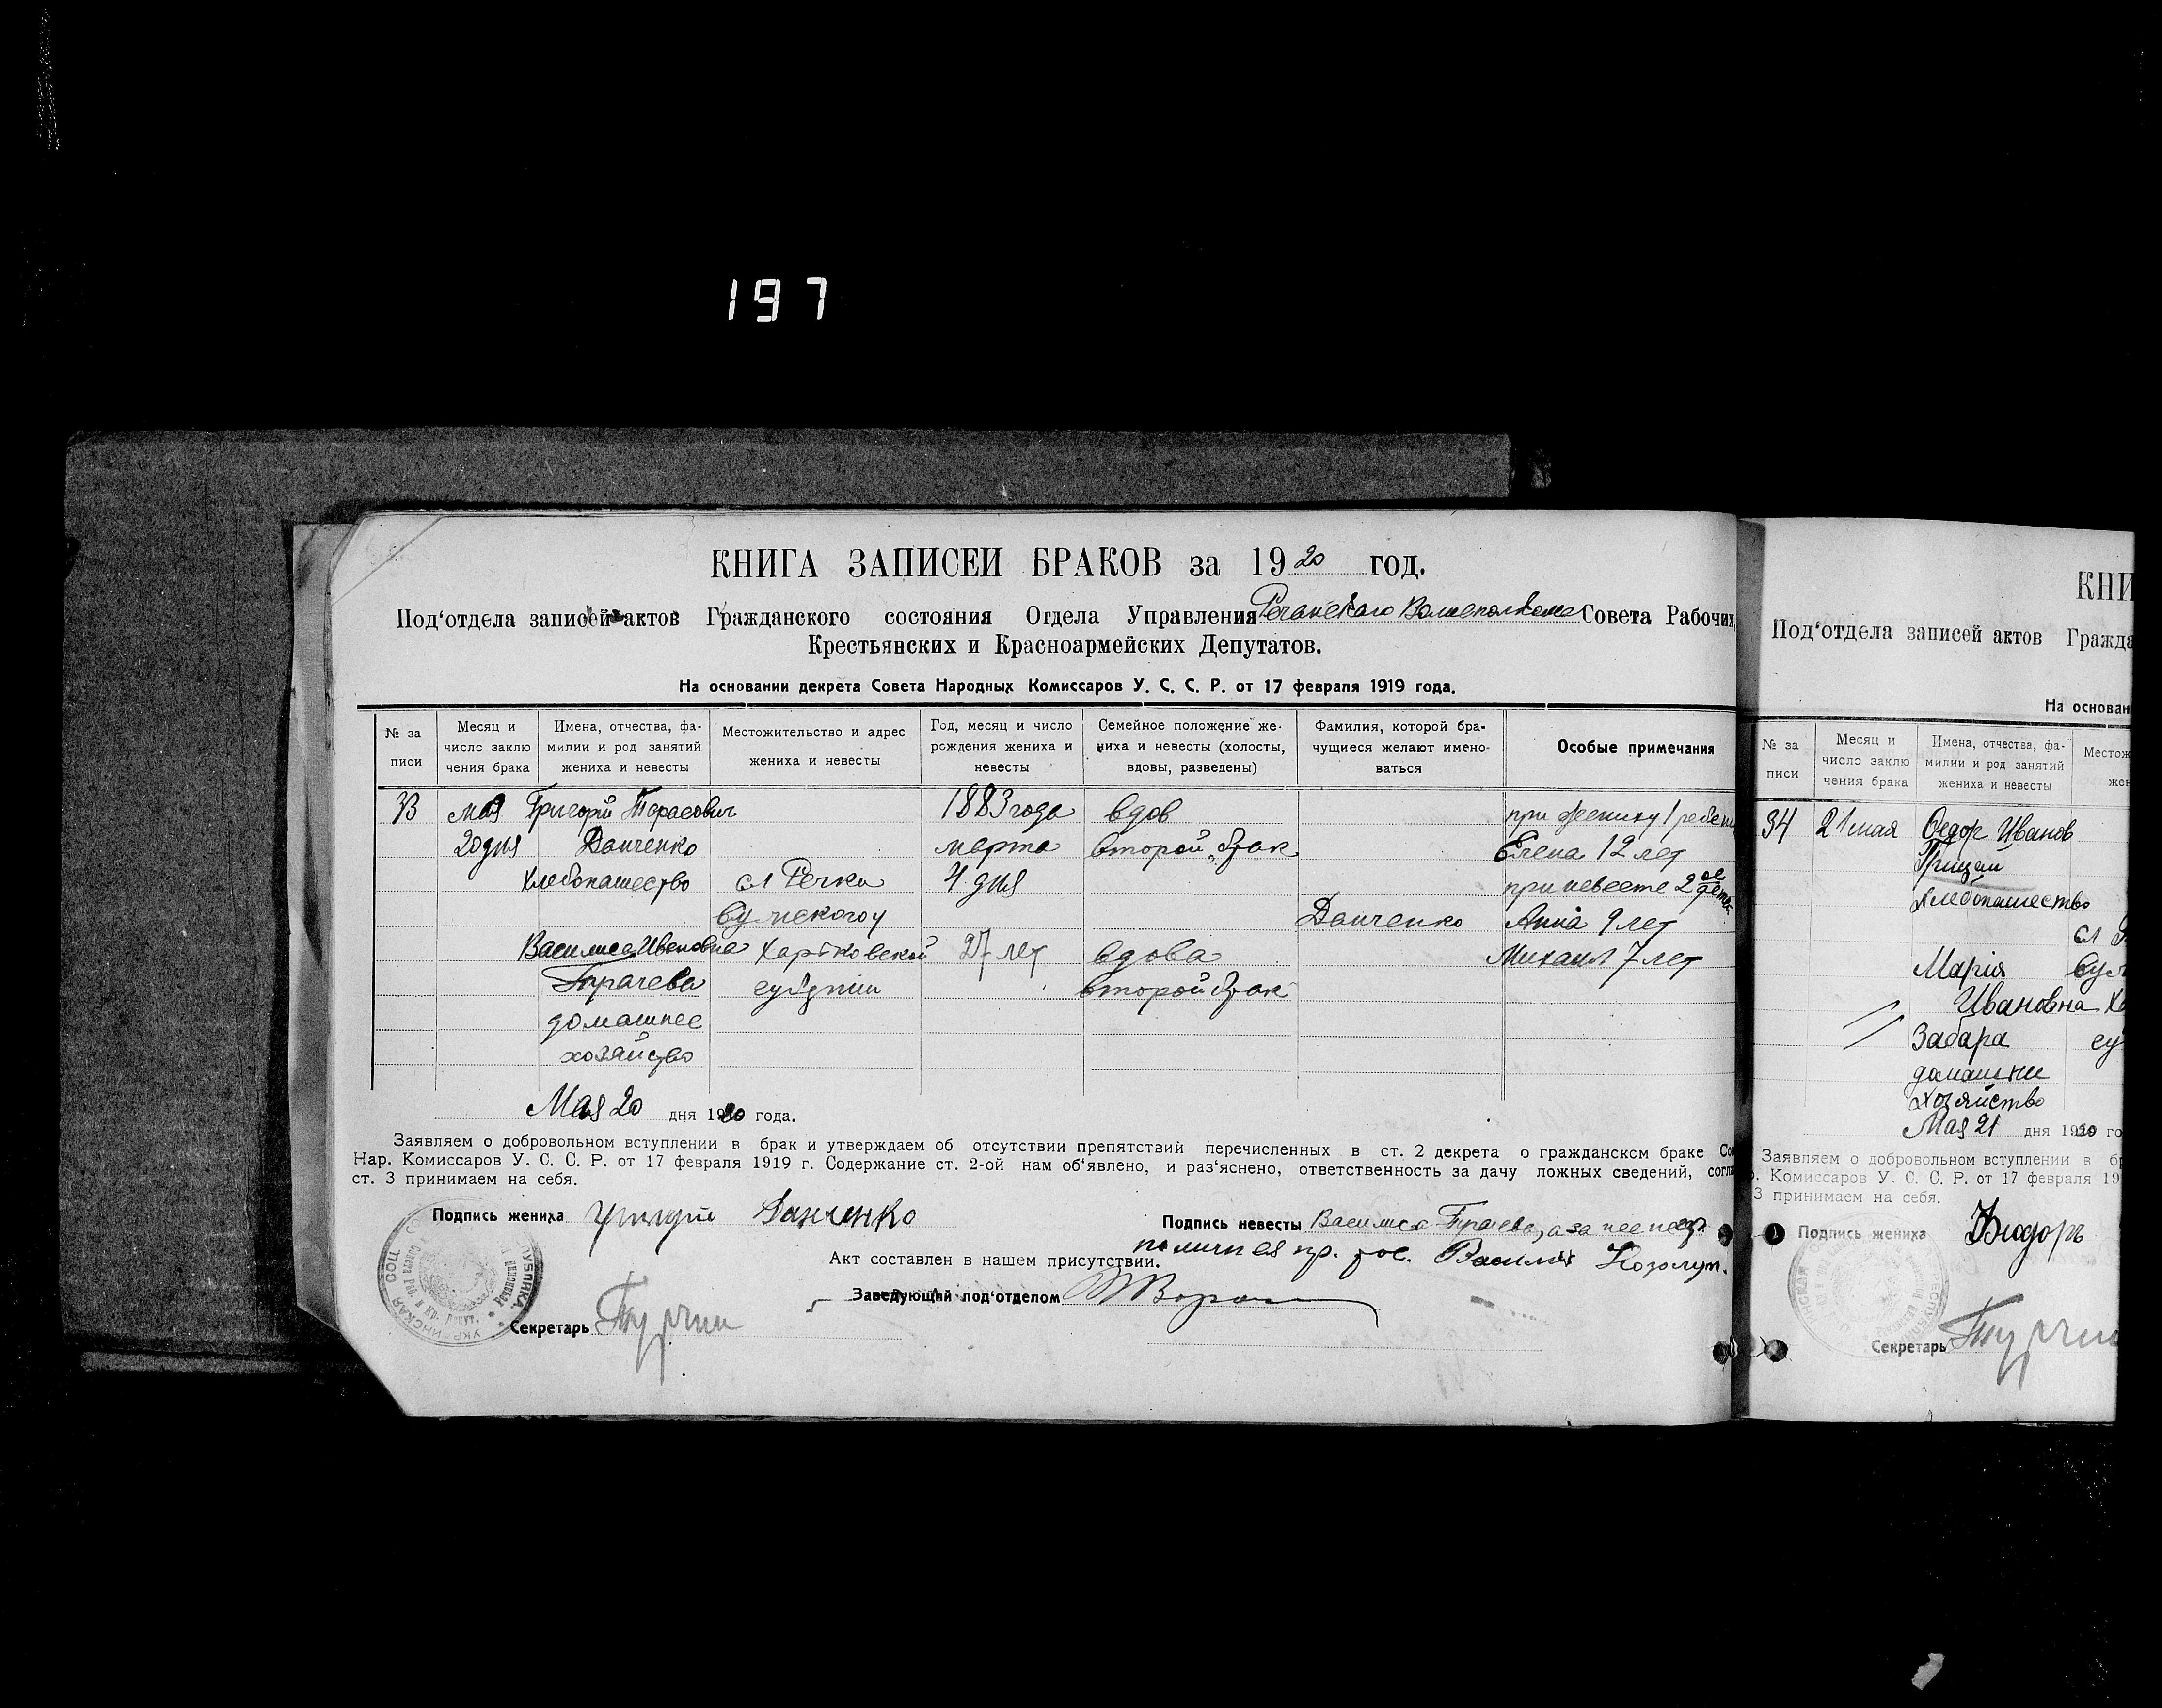 197
КНИГА ЗАПИСЕЙ БРАКОВ за 1920 год.
Под‘отдела записей актов Гражданского состояния Отдела Управления Речанского Совета Рабочих,
Крестьянских и Красноармейских Депутатов.
На основании декрета Совета Народных Комиссаров У. С. С. Р. от 17 февраля 1919 года.
№ за писи
Месяц и число заклю чения брака
Имена, отчества, фа- милии и род занятий жениха и невесты
Местожительство и адрес жениха и невесты
Год, месяц и число рождения жениха и невесты
Семейное положение же- ниха и невесты (холосты, вдовы, разведены)
Фамилия, которой бра- чущиеся желают имено- ваться
Особые примечания
33 мая Григорій Тарасович 1883 года вдов при женихе 1
20 дня Данченко марта второй брак Елена 12 лет
Хлебопашество сл Речки 4 дня при невесте 2ое детей
Сумского у Данченко Анна 9 лет
Василиса Ивановна Харьковской 27 лет вдова Михаил 7 лет
губернии второй брак
домашнее
хозяйство
Мая 20 дня 1920 года.
Заявляем о добровольном вступлении в брак и утверждаем об отсутствии препятствий перечисленных в ст. 2 декрета о гражданском браке Со
Нар. Комиссаров У. С. С. Р. от 17 февраля 1919 г. Содержание ст. 2-ой нам об‘явлено, и раз‘яснено, ответственность за дачу ложных сведений, согла
ст. 3 принимаем на себя.
Подпись жениха Григорій Данченко
Подпись невесты Василиса а за нее
Акт составлен в нашем присутствии.
Заведующий под‘отделом
Секретарь
КНИ
Под‘отдела записей актов Гражда
На основан
№ за писи
Месяц и число заклю чения брака
Имена, отчества, фа- милии и род занятий жениха и невесты
Местож жен
34 21 мая Федор Иванов
Хлебопашество
сл
Марія Сум
Ивановна Ха
Забара гу
домашнее
хозяйство
Мая 21 дня 1920 го
Заявляем о добровольном вступлении в бр
р. Комиссаров У. С. С. Р. от 17 февраля 19
3 принимаем на себя.
Подпись жениха
Секретарь